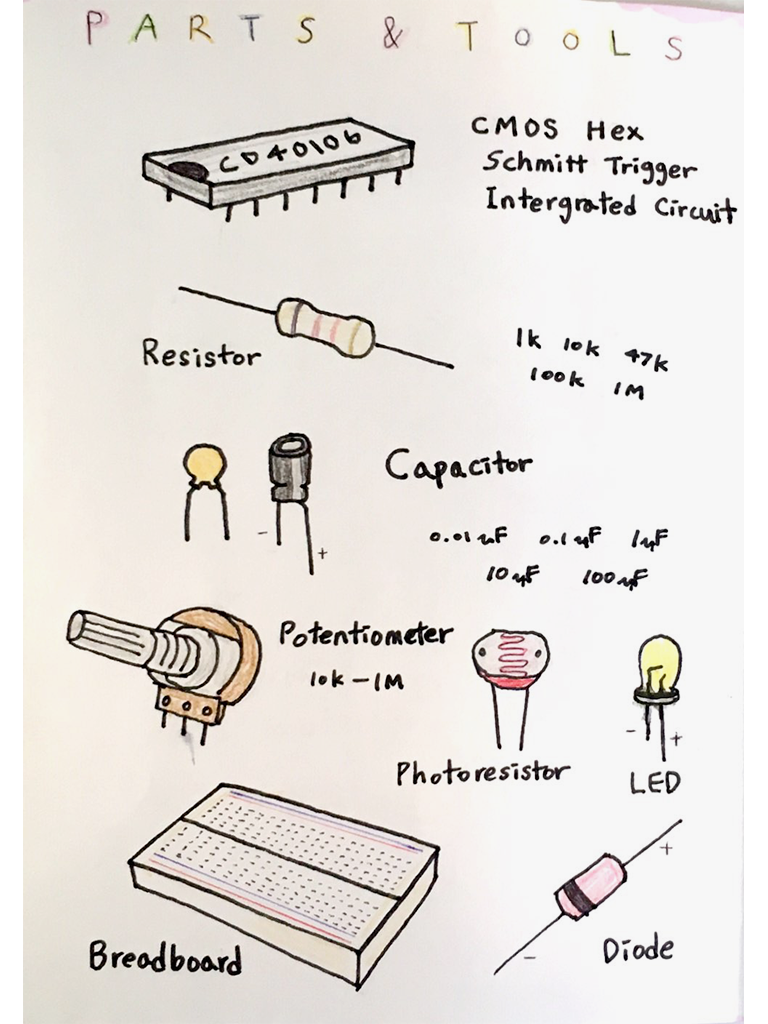 PARTS & TOOLS
CD40106
CMOS Hex
Schmitt Trigger
Intergrated Circuit
Resistor
1k 10k 47k
100k 1M
Capacitor
- +
0.01uF 0.1uF 1uF
10uF 100uF
Potentiometer
10k - 1M
Photoresistor
- +
LED
Breadboard
+
-
Diode